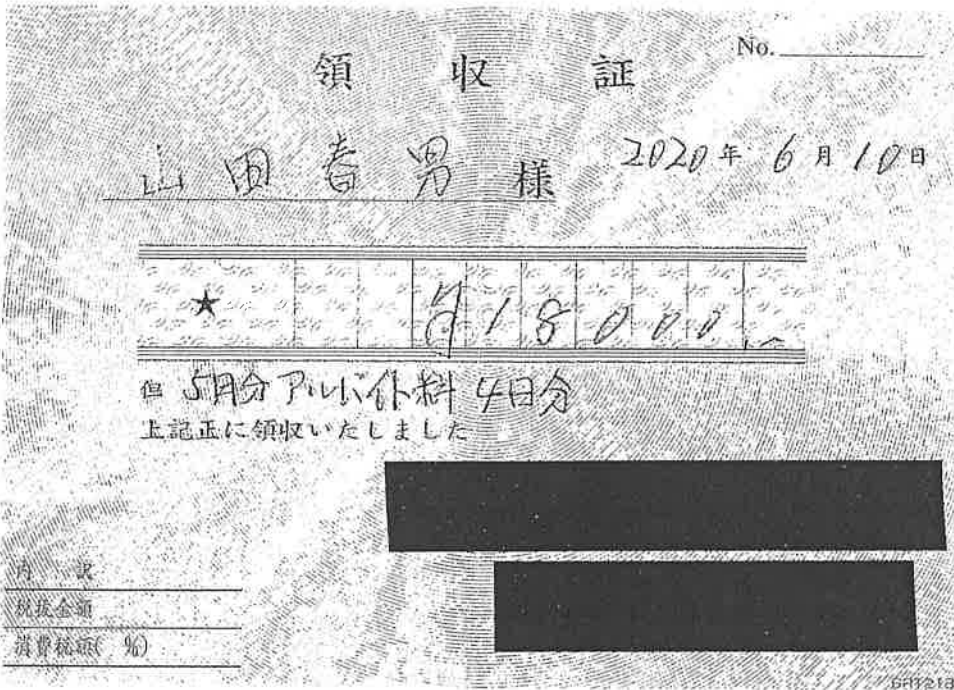 No.
領収証
山田春男 様
2020年6月10日
★ ¥18000-
但 5月分アルバイト料 4日分
上記正に領収いたしました
内 訳
税抜金額
消費税額( %)